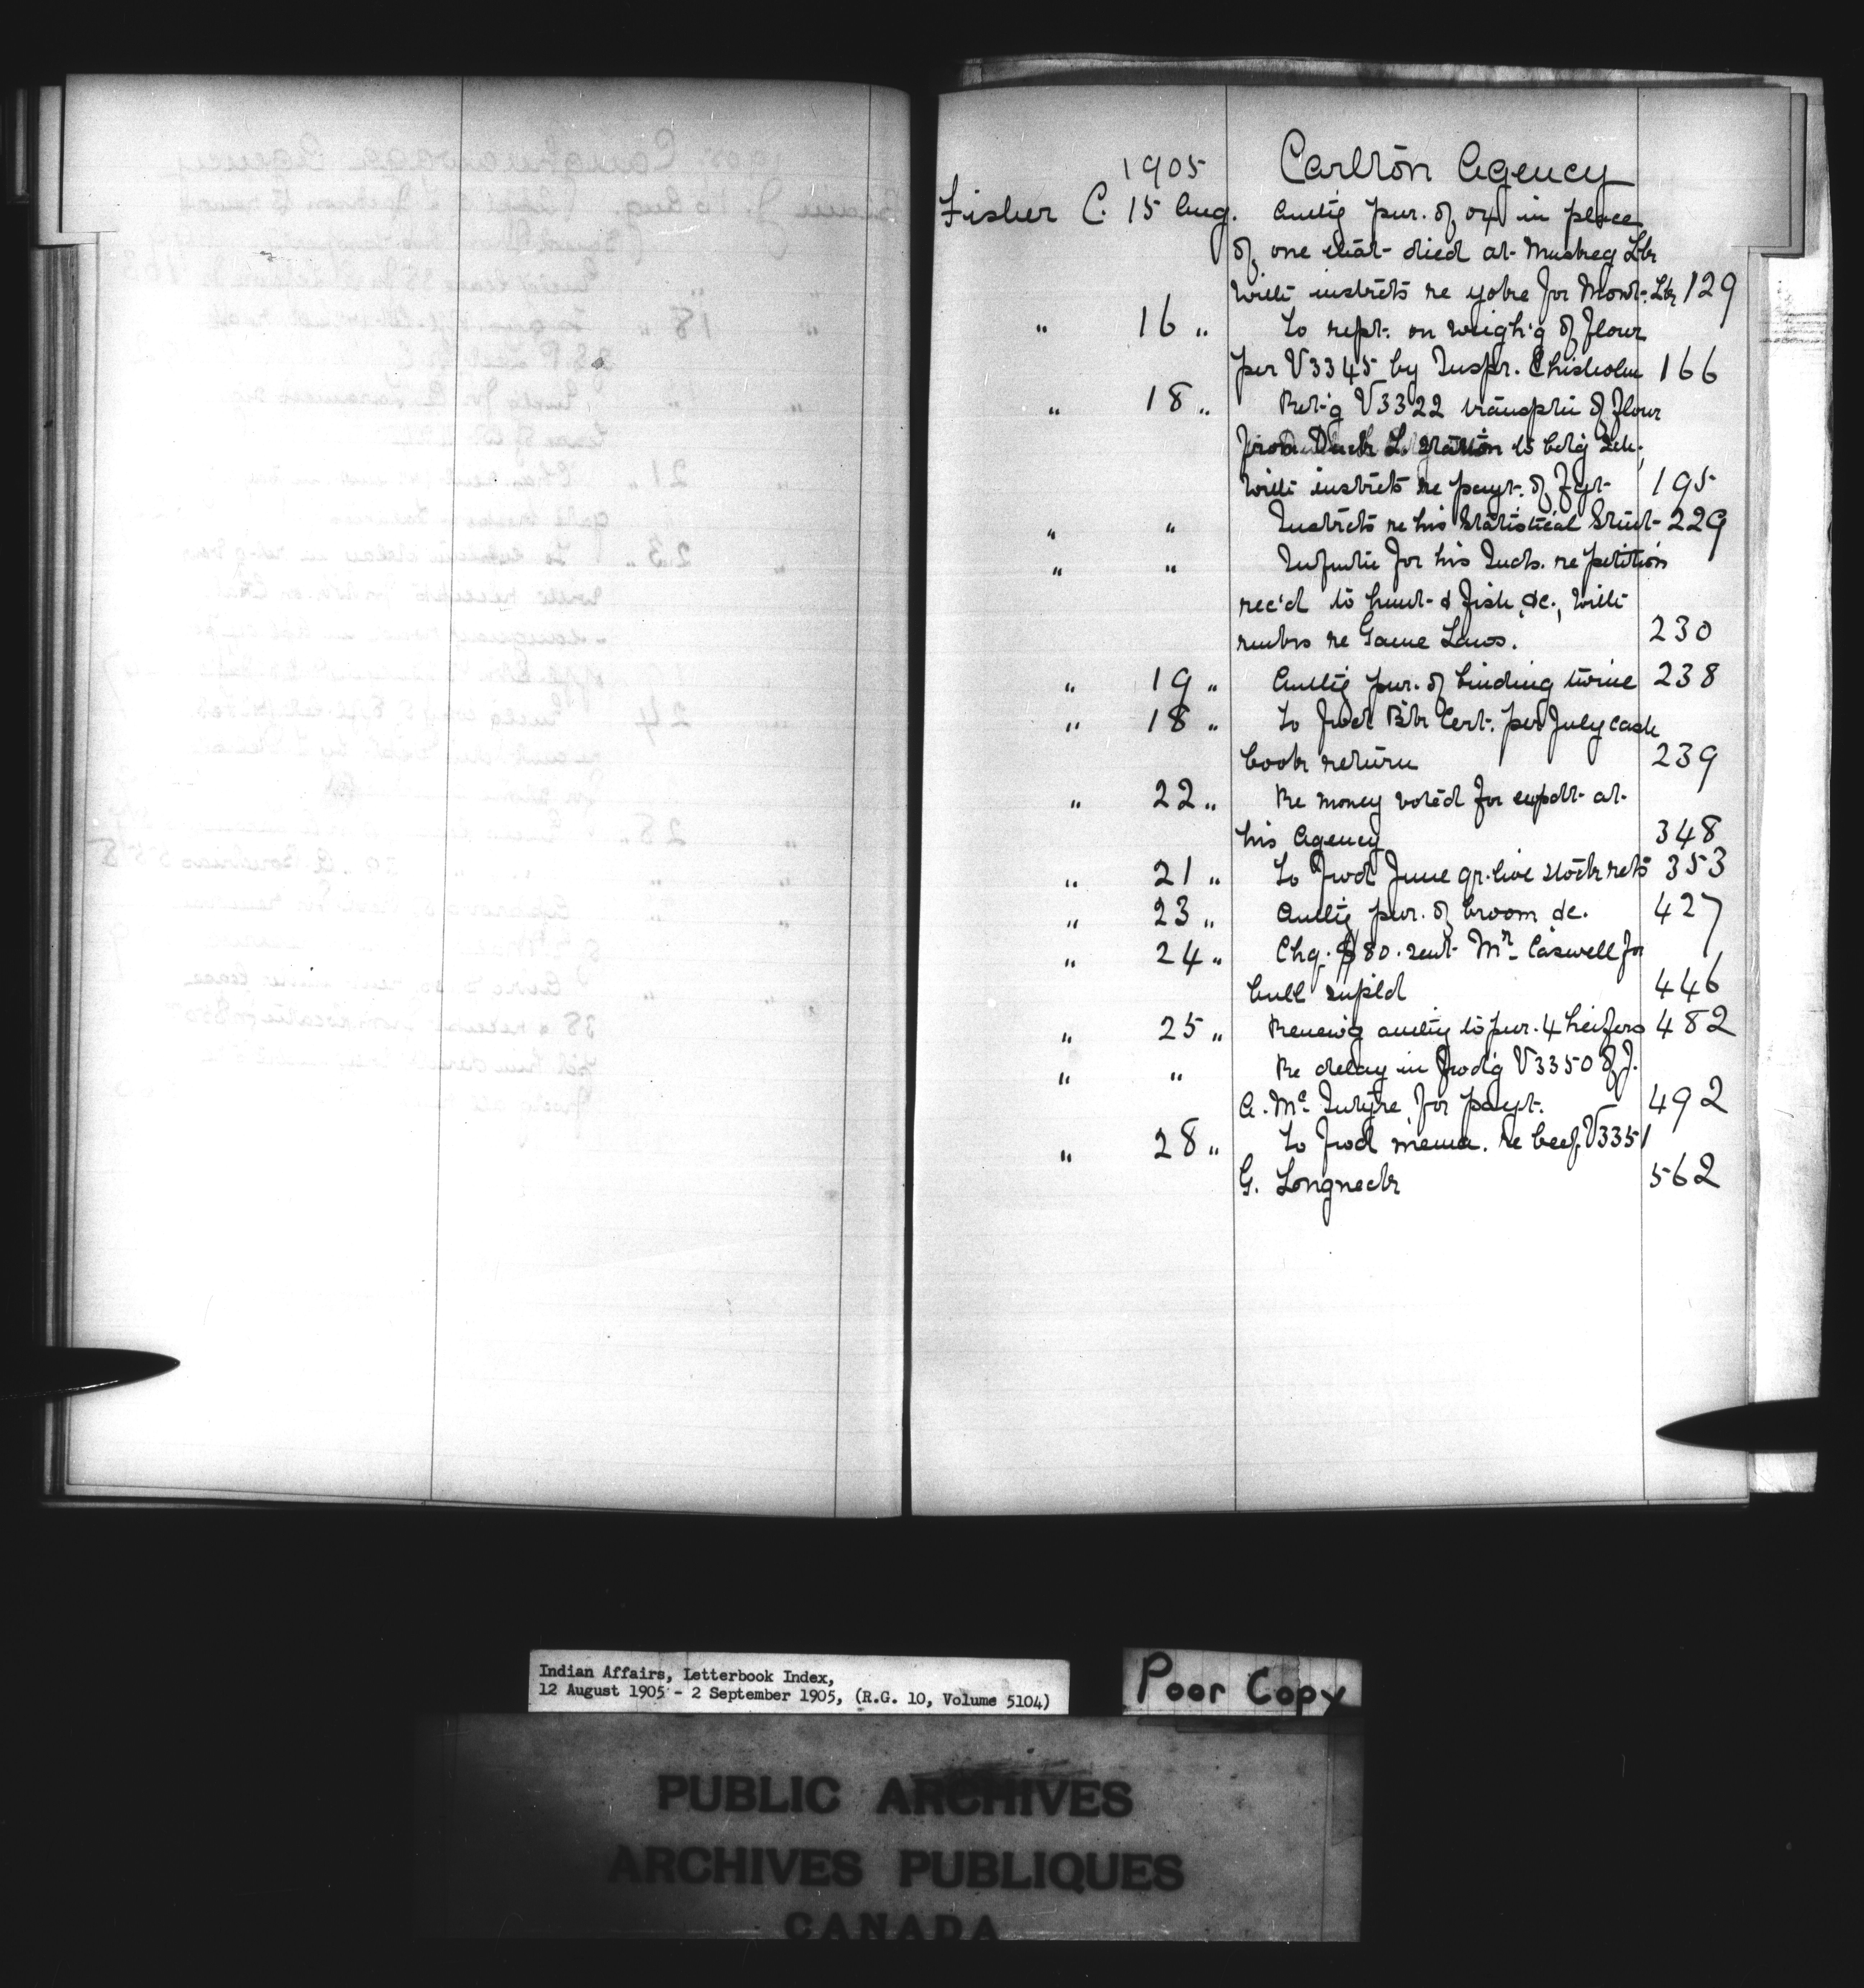 1905 Carlton Agency
Fisher C. 15 Aug. Authg pur. of ox in place
of one that died at Muskeg Lk
with instrcts re yoke for Mont. Lk 129
" 16 " To rept. on weigh'g of flour
per V3345 by Inspr. Chisholm 166
" 18 " Ret'g V3322 transptn of flour
from Duck L. station to bdg Sch.
with instrcts re payt. of Fgt 195
" " Instrcts re his Statistical Stmt 229
" " Infmtn for his Inds. re petition
rec'd to hunt & fish, &c., with
rmks re Game Laws. 230
" 19 " Authg pur. of binding twine 238
" 18 " To fwd Bk Cert. per July cash
book return 239
" 22 " Re money voted for expdt at
his Agency 348
" 21 " To fwd June qr. live stock rets 353
" 23 " Authg pur. of broom &c. 427
" 24 " Chq. $80. sent Mr Caswell for
bull supld 446
" 25 " Renewg authy to pur. 4 heifers 482
" " Re delay in fwd'g V3350 of J.
A. Mc Intyre for payt. 492
" 28 " To fwd memo. re beef V3351
G. Longneck 562
Indian Affairs, Letterbook Index,
12 August 1905 - 2 September 1905, (R.G. 10, Volume 5104)
Poor Copy
PUBLIC ARCHIVES
ARCHIVES PUBLIQUES
CANADA